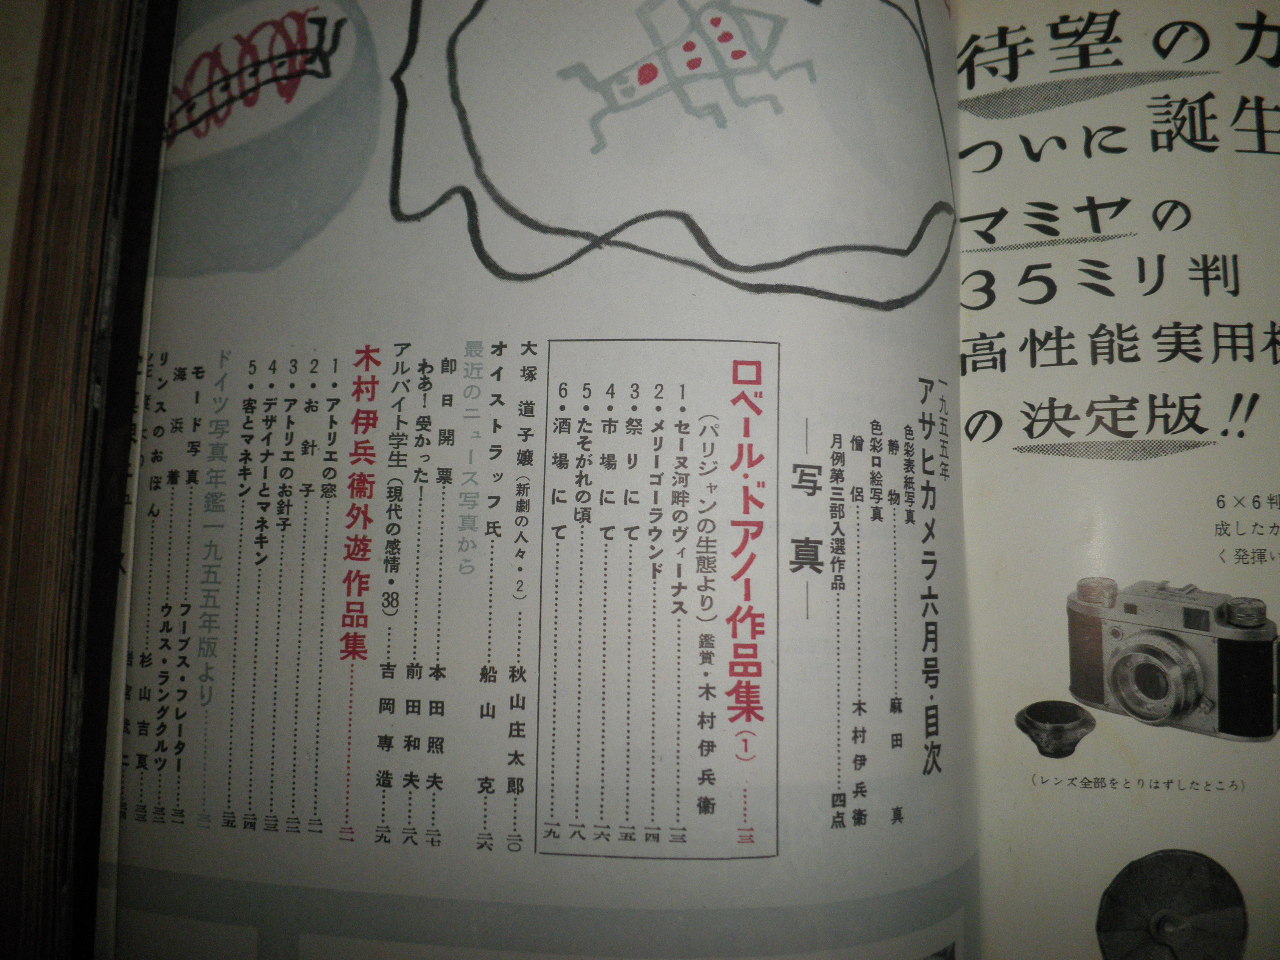 待望のカ
ついに誕生
マミヤの
35ミリ判
高性能実用機
の決定版!!
6×6判
成したカ
く発揮い
(レンズ全部をとりはずしたところ)
一九五五年
アサヒカメラ六月号・目次
色彩表紙写真
静物……麻田真
色彩口絵写真
僧侶……木村伊兵衛
月例第三部入選作品……四点
―写真―
ロベール・ドアノー作品集(1)……一三
(パリジャンの生態より)鑑賞・木村伊兵衛
1・セーヌ河畔のヴィーナス……一三
2・メリーゴーラウンド……一四
3・祭りにて……一五
4・市場にて……一六
5・たそがれの頃……一八
6・酒場にて……一九
大塚道子嬢(新劇の人々・2)……秋山庄太郎……二〇
オイストラッフ氏……船山克……二六
最近のニュース写真から
即日開票……本田照夫……二七
わあ!受かった!……前田和夫……二八
アルバイト学生(現代の感情・38)……吉岡専造……二九
木村伊兵衛外遊作品集……二一
1・アトリエの窓……二一
2・お針子……二二
3・アトリエのお針子……二二
4・デザイナーとマネキン……二三
5・客とマネキン……二四
……二五
ドイツ写真年鑑一九五五年版より
モード写真……フーブス・フレーター
海浜着……ウルス・ラングクルツ
リンスのおぼん……杉山吉良